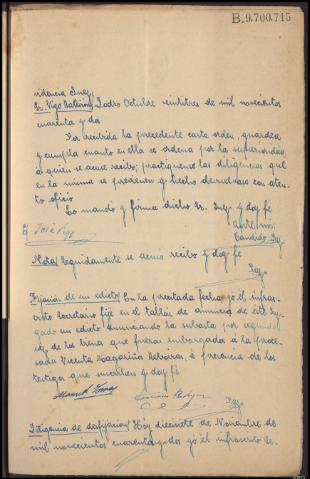 B.9.700.715
videncia Juez
Sr. Vigo Padrón, octubre veintitres de mil novecientos
cuarenta y dos
Por recibida la precedente carta orden, guardese
y cumpla cuanto en ella se ordena por la superioridad
a quien se acuse recibo; practiquense las diligencias que
en la misma se previenen y hecho devuelvase con aten-
to oficio
Lo mando y firma dicho Sr. Juez y doy fe
José Vigo
ante mi:
Nota/ Seguidamente se acusó recibo y doy fe
Fijacion de un edicto/ En la precitada fecha yo el infras-
crito Secretario fije en el tablon de anuncios de este Juz-
gado un edicto anunciando la subasta por segunda
vez de los bienes que fueron embargados a la proce-
sada Vicenta Magariños a presencia de los
testigos que suscriben y doy fé
Diligencia de desfijacion/ Hoy diecisiete de Noviembre de
mil novecientos cuarenta y dos yo el infrascrito Se-